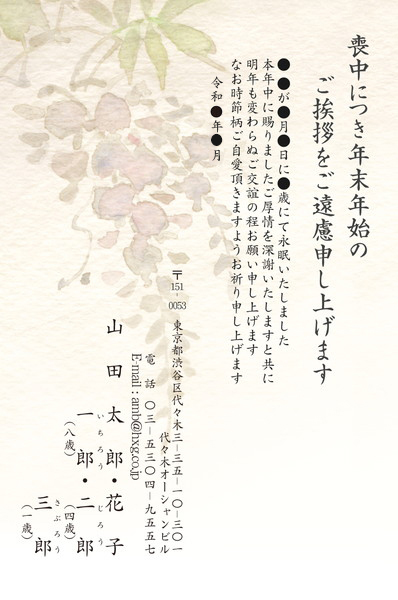 喪中につき年末年始の
ご挨拶をご遠慮申し上げます
●●が●月●日に●歳にて永眠いたしました
本年中に賜りましたご厚情を深謝いたしますと共に
明年も変わらぬご交誼の程お願い申し上げます
なお時節柄ご自愛頂きますようお祈り申し上げます
令和●年●月
〒151-0053
東京都渋谷区代々木三-三五-一〇-三〇一
代々木オーシャンビル
電話 〇三-五三〇四-九五五七
E-mail : amb@hxg.co.jp
山田太郎・花子
一郎・二郎
いちろう じろう
(八歳) (四歳)
三郎
さぶろう
(一歳)